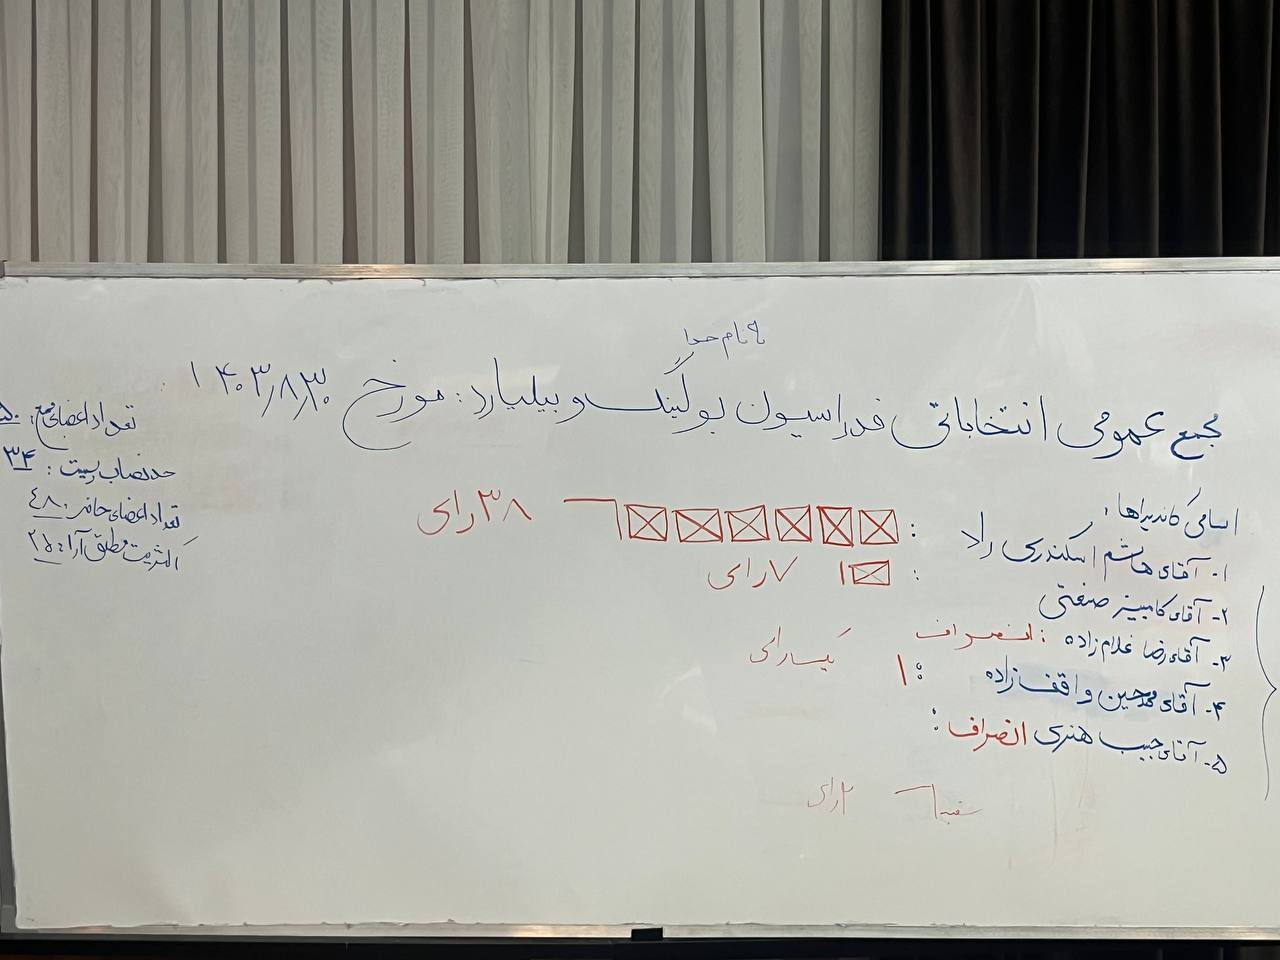 به نام خدا
مجمع عمومی انتخاباتی فدراسیون بولینگ و بیلیارد: مورخ ۱۴۰۳/۸/۳۰
اسامی کاندیداها:
۱- آقای هاشم اسکندری راد : ۳۸ رای
۲- آقای کامبیز صنعتی : ۷ رای
۳- آقای رضا غلام زاده : انصراف
۴- آقای محمدحسین واقف زاده : ۱ یک رای
۵- آقای حبیب هنری انصراف :
سفید ۲ رای
تعداد اعضای مجمع: ۵۰
حد نصاب رسمیت: ۳۴
تعداد اعضای حاضر: ۴۸
اکثریت مطلق آرا: ۲۵